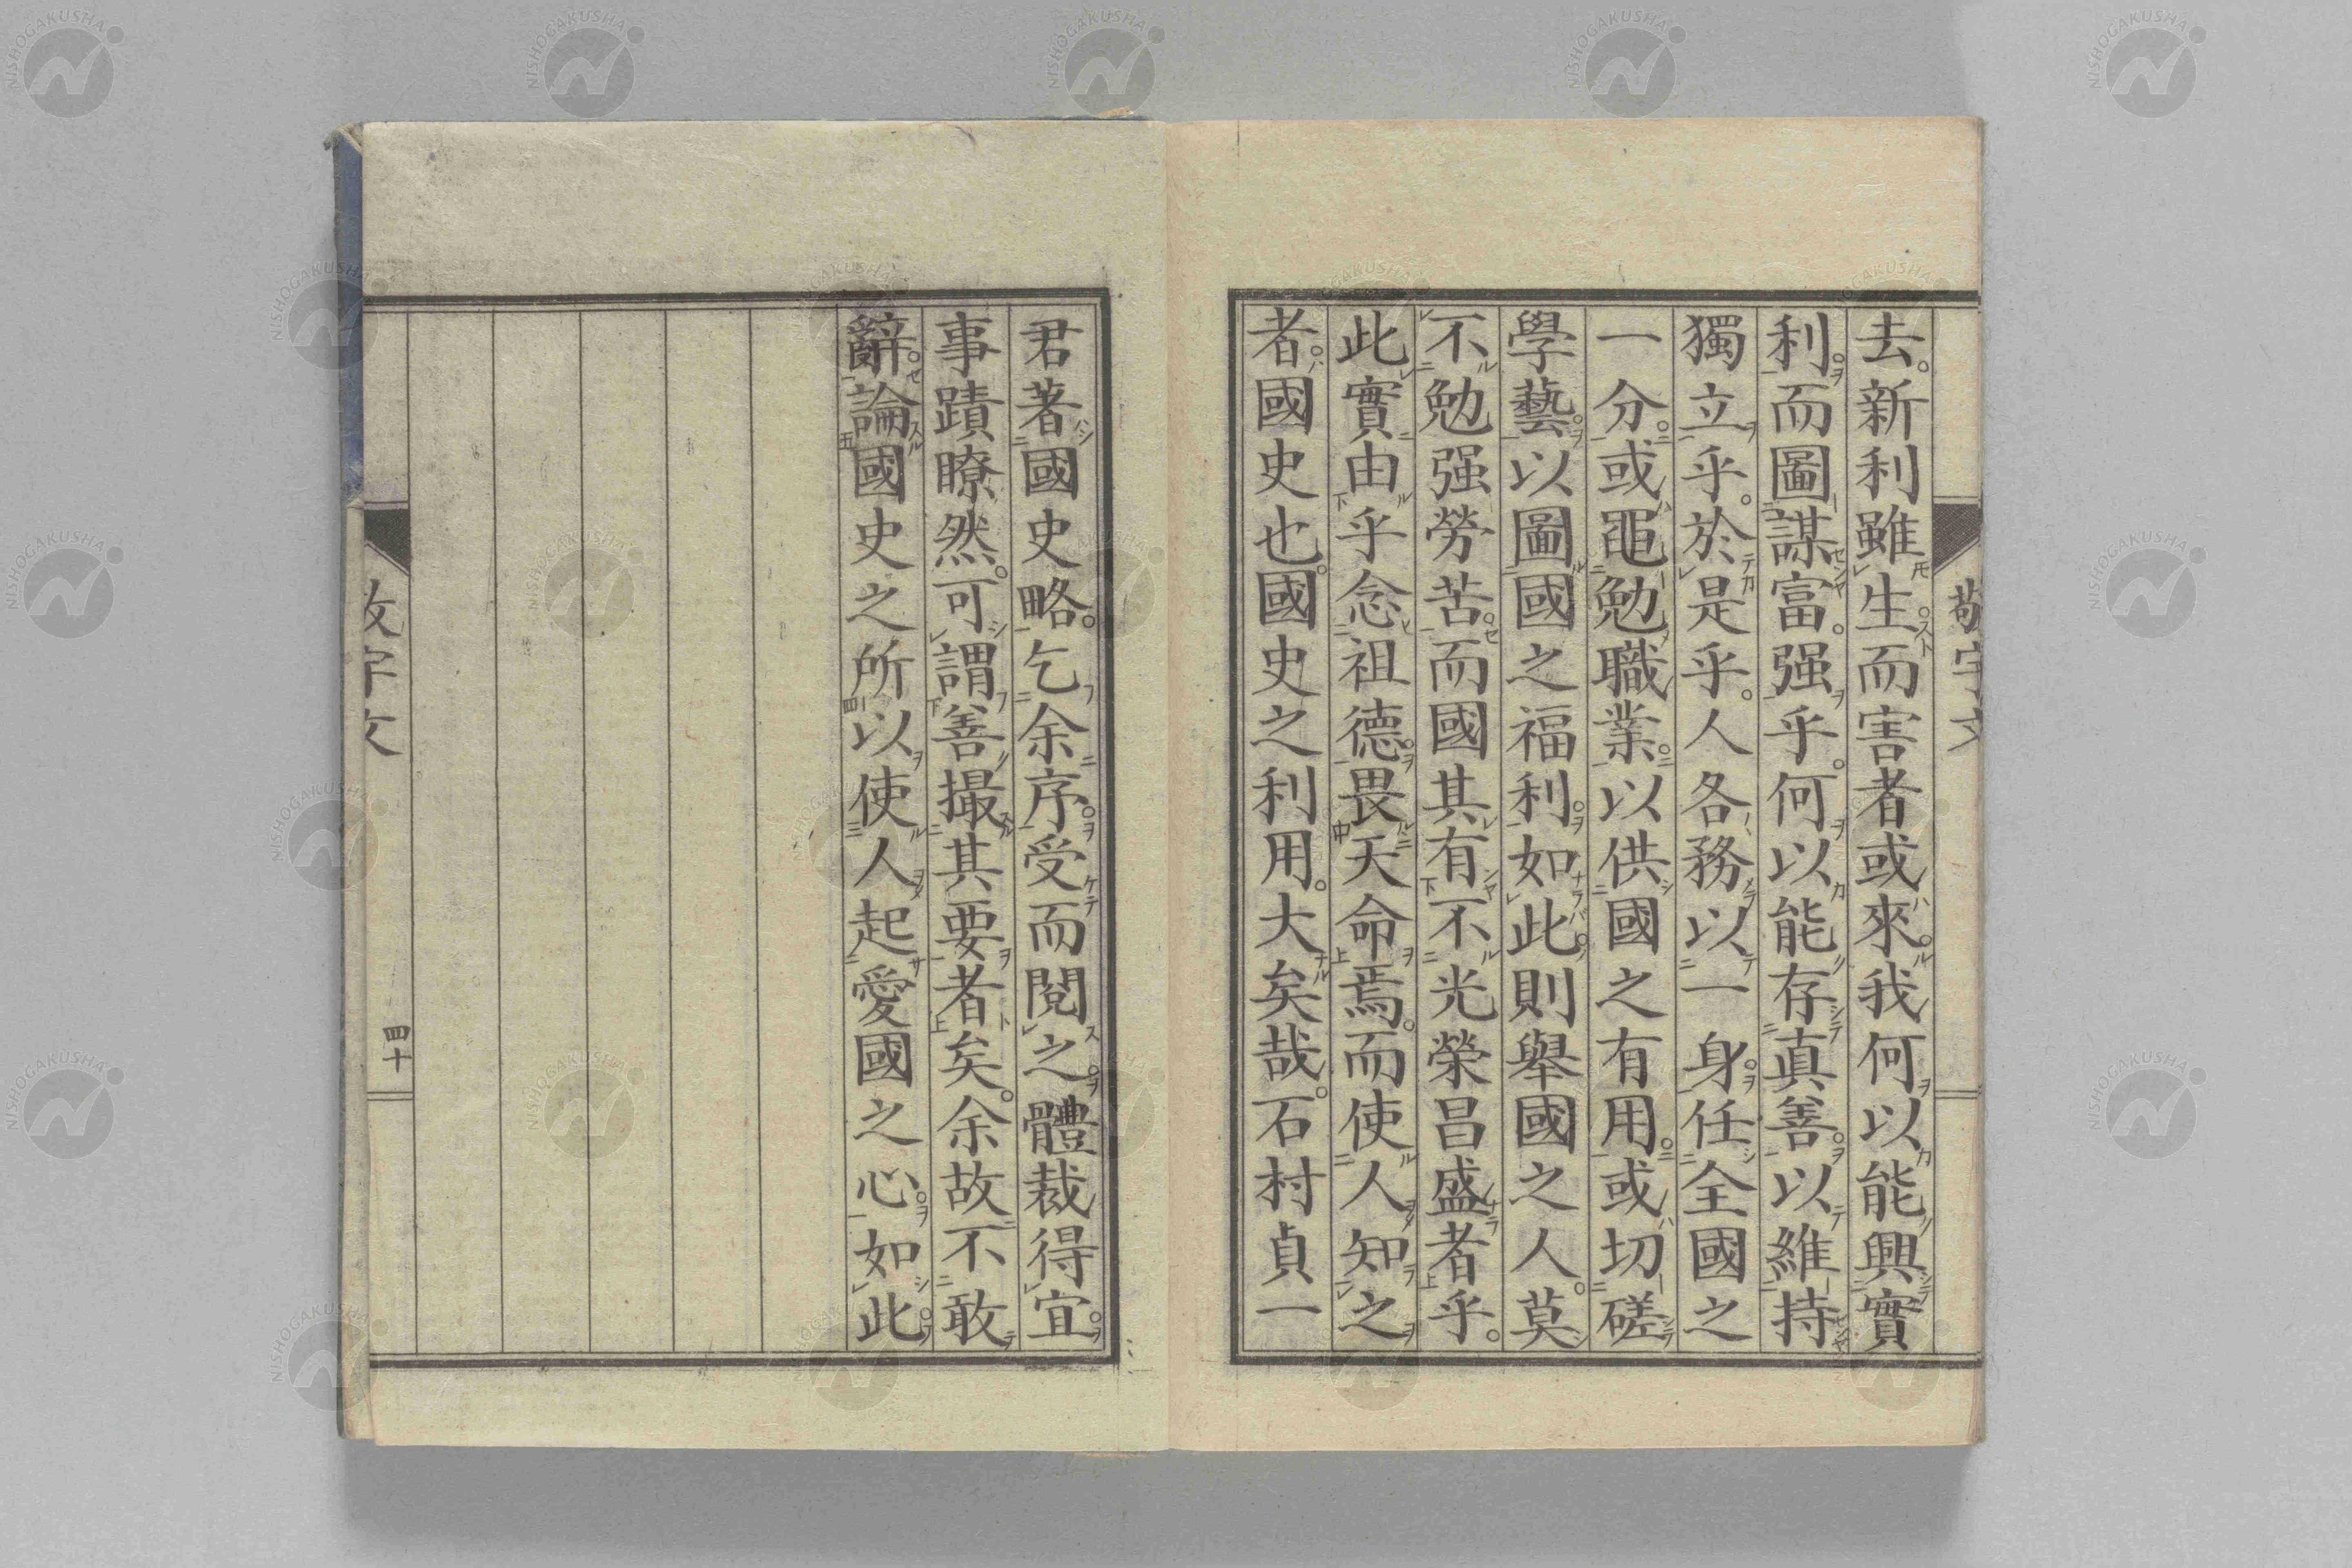 敬宇文
去。新利雖生。而害者或來。我何以能興實
利。而圖謀富。强乎。何以能存真善。以維持
獨立乎。於是乎。人各務以一身。任全國之
一分。或黽勉職業。以供國之有用。或切磋
學藝。以圖國之福利。如此。則舉國之人。莫
不勉强勞苦。而國其有不光榮昌盛者乎。
此實由乎念祖德。畏天命焉。而使人知之
者。國史也。國史之利用。大矣哉。石村貞一
君著國史略。乞余序。受而閱之。體裁得宜。
事蹟瞭然。可謂善撮其要者矣。余故不敢
辭。論國史之所以使人起愛國之心。如此。
四十
NISHOGAKUSHA